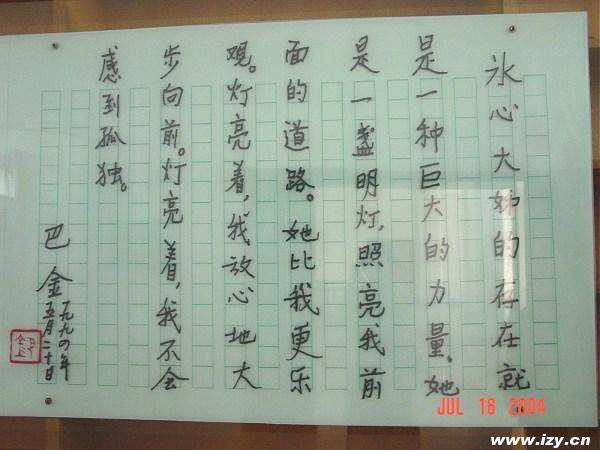 冰心大姊的存在就
是一种巨大的力量,她
是一盏明灯,照亮我前
面的道路。她比我更乐
观。灯亮着,我放心地大
步向前。灯亮着,我不会
感到孤独。
巴金
一九九四年
五月二十日
JUL 18 2004
www.izy.cn